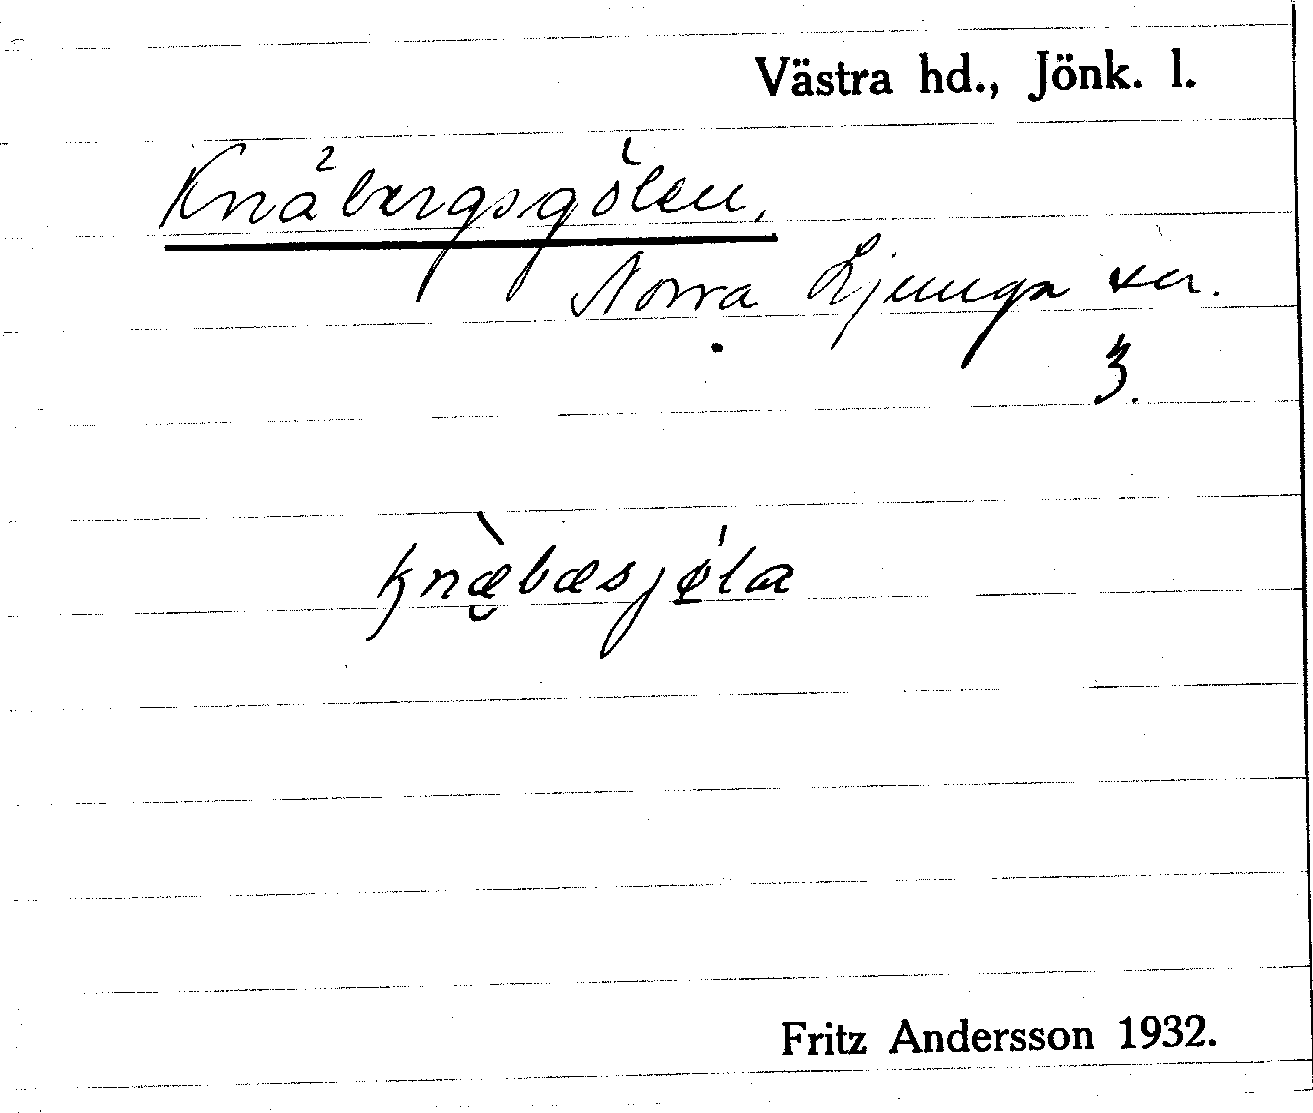 Västra hd., Jönk. l.
Knäbergsgölen.
Norra Ljunga sn.
3.
knæ̀bæsjø̨̀la
Fritz Andersson 1932.